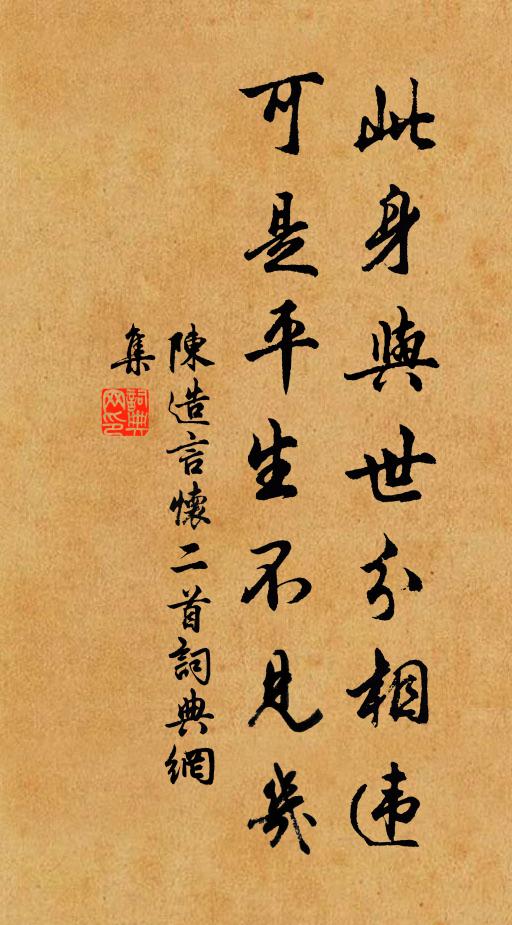 此身與世分相違
可是平生不見幾
陳造言懷二首詞典網
集
詞典
网印